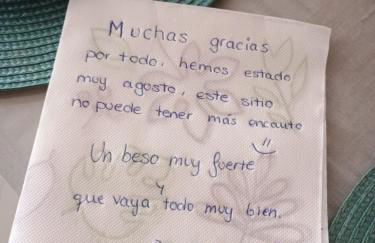 Muchas gracias
por todo, hemos estado
muy agosto, este sitio
no puede tener más encauto
Un beso muy fuerte
y
que vaya todo muy bien.